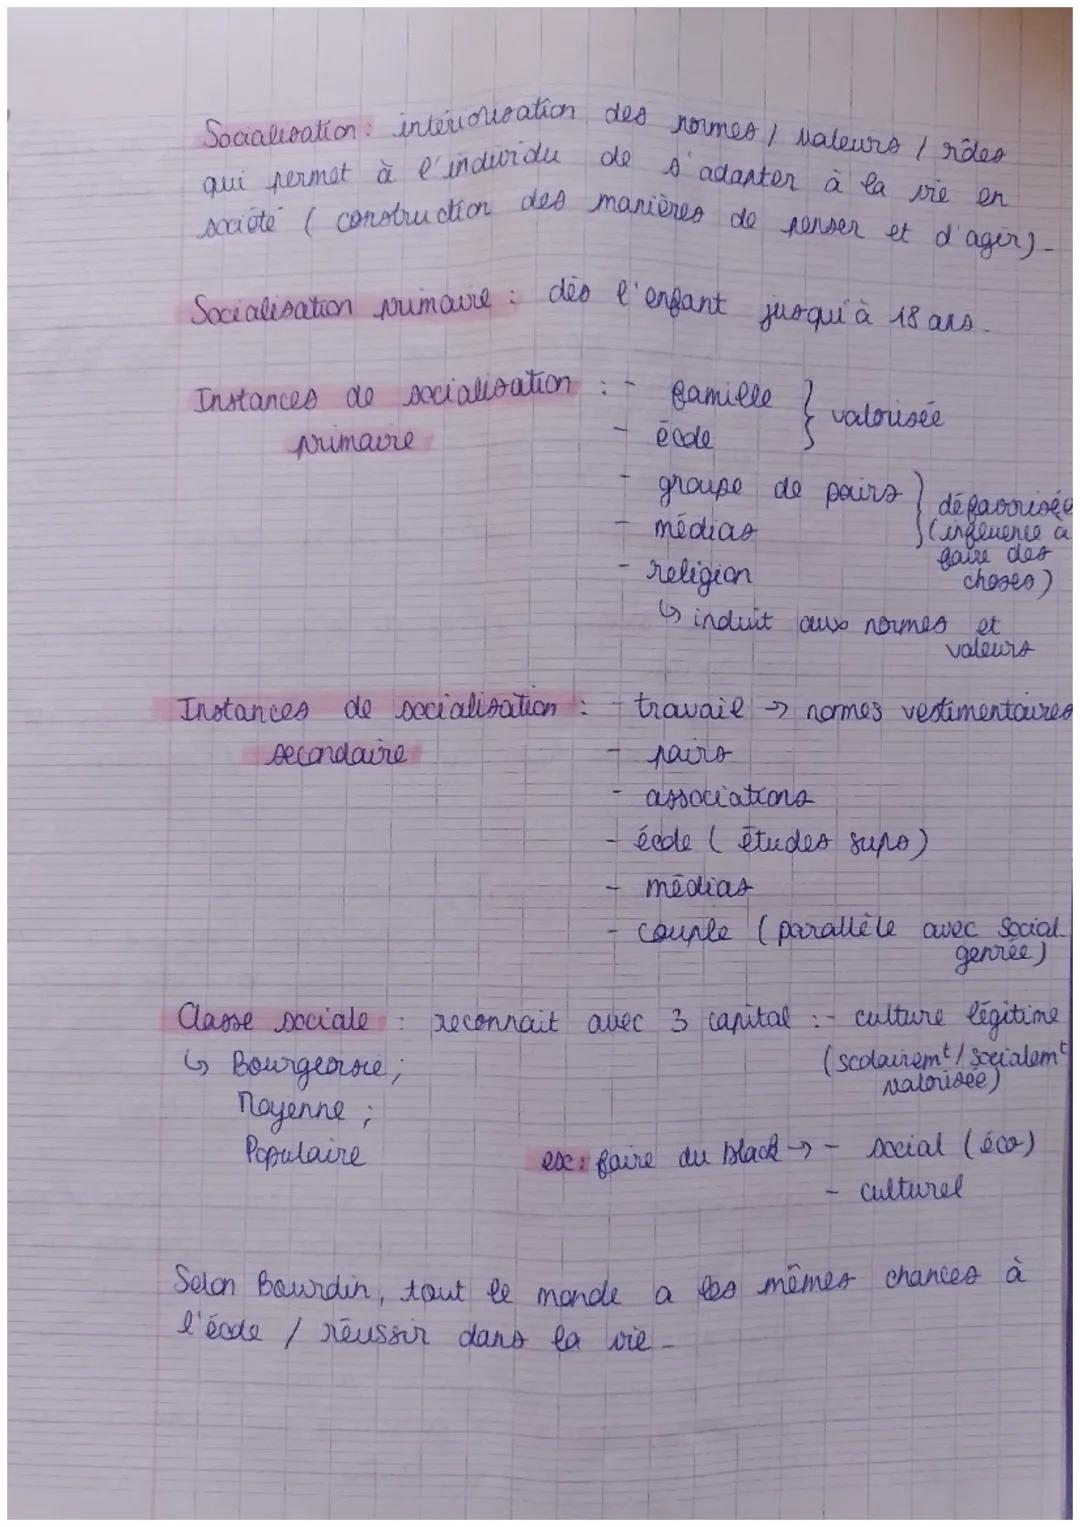 Socialisation : intériorisation des normes / valeurs / rôles
qui permet à l'individu de s'adapter à la vie en
société ( construction des manières de penser et d'agir).
Socialisation primaire : dès l'enfant jusqu'à 18 ans.
Instances de socialisation : - famille } valorisée
primaire - école
- groupe de pairs } défavorisée
- médias (influence à
faire des
- religion choses)
↳ induit aux normes et
valeurs
Instances de socialisation : - travail → normes vestimentaires
secondaire - pairs
- associations
- école ( études sups)
- médias
- couple (parallèle avec social.
genrée)
Classe sociale : reconnait avec 3 capital : - culture légitime
↳ Bourgeoisie ; (scolairemt / socialemt
valorisée)
Moyenne ;
Populaire ex : faire du black → - social (éco)
- culturel
Selon Bourdin, tout le monde a les mêmes chances à
l'école / réussir dans la vie.